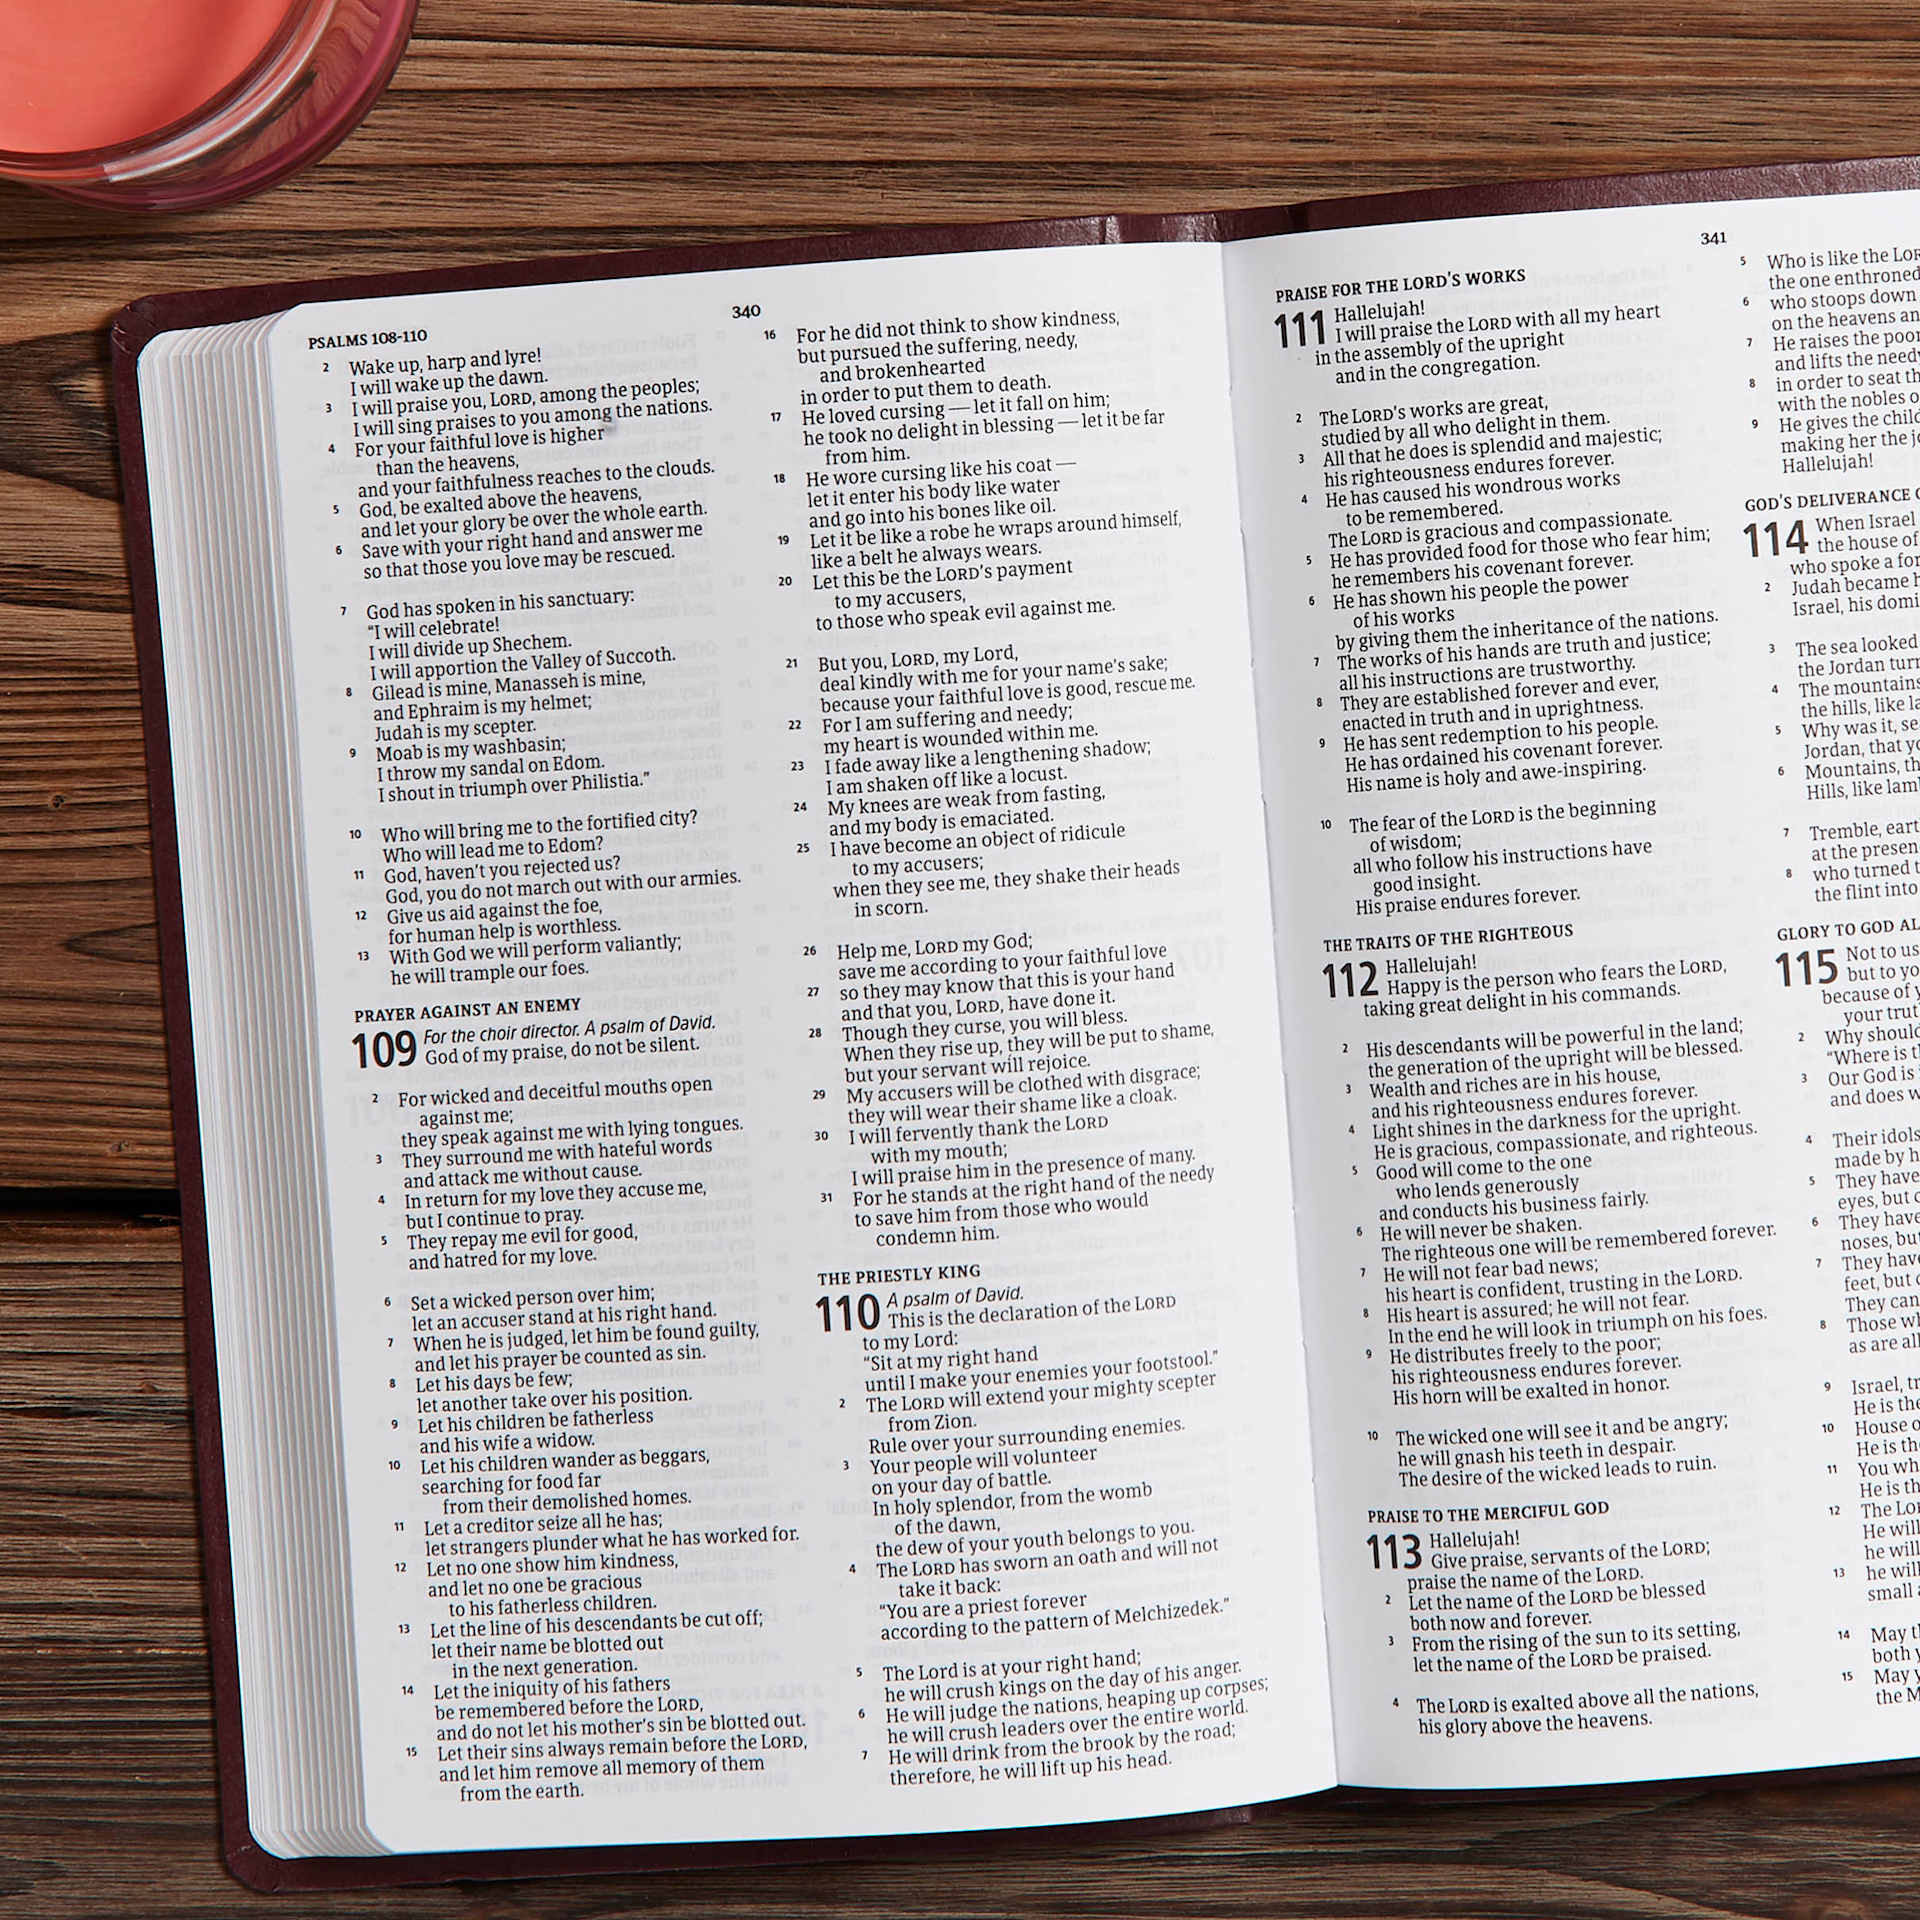 340
PSALMS 108-110
2 Wake up, harp and lyre!
I will wake up the dawn.
3 I will praise you, LORD, among the peoples;
I will sing praises to you among the nations.
4 For your faithful love is higher
than the heavens,
and your faithfulness reaches to the clouds.
5 God, be exalted above the heavens,
and let your glory be over the whole earth.
6 Save with your right hand and answer me
so that those you love may be rescued.
7 God has spoken in his sanctuary:
“I will celebrate!
I will divide up Shechem.
I will apportion the Valley of Succoth.
8 Gilead is mine, Manasseh is mine,
and Ephraim is my helmet;
Judah is my scepter.
9 Moab is my washbasin;
I throw my sandal on Edom.
I shout in triumph over Philistia.”
10 Who will bring me to the fortified city?
Who will lead me to Edom?
11 God, haven’t you rejected us?
God, you do not march out with our armies.
12 Give us aid against the foe,
for human help is worthless.
13 With God we will perform valiantly;
he will trample our foes.
PRAYER AGAINST AN ENEMY
109 For the choir director. A psalm of David.
God of my praise, do not be silent.
2 For wicked and deceitful mouths open
against me;
they speak against me with lying tongues.
3 They surround me with hateful words
and attack me without cause.
4 In return for my love they accuse me,
but I continue to pray.
5 They repay me evil for good,
and hatred for my love.
6 Set a wicked person over him;
let an accuser stand at his right hand.
7 When he is judged, let him be found guilty,
and let his prayer be counted as sin.
8 Let his days be few;
let another take over his position.
9 Let his children be fatherless
and his wife a widow.
10 Let his children wander as beggars,
searching for food far
from their demolished homes.
11 Let a creditor seize all he has;
let strangers plunder what he has worked for.
12 Let no one show him kindness,
and let no one be gracious
to his fatherless children.
13 Let the line of his descendants be cut off;
let their name be blotted out
in the next generation.
14 Let the iniquity of his fathers
be remembered before the LORD,
and do not let his mother’s sin be blotted out.
15 Let their sins always remain before the LORD,
and let him remove all memory of them
from the earth.
16 For he did not think to show kindness,
but pursued the suffering, needy,
and brokenhearted
in order to put them to death.
17 He loved cursing — let it fall on him;
he took no delight in blessing — let it be far
from him.
18 He wore cursing like his coat —
let it enter his body like water
and go into his bones like oil.
19 Let it be like a robe he wraps around himself,
like a belt he always wears.
20 Let this be the LORD’s payment
to my accusers,
to those who speak evil against me.
21 But you, LORD, my Lord,
deal kindly with me for your name’s sake;
because your faithful love is good, rescue me.
22 For I am suffering and needy;
my heart is wounded within me.
23 I fade away like a lengthening shadow;
I am shaken off like a locust.
24 My knees are weak from fasting,
and my body is emaciated.
25 I have become an object of ridicule
to my accusers;
when they see me, they shake their heads
in scorn.
26 Help me, LORD my God;
save me according to your faithful love
27 so they may know that this is your hand
and that you, LORD, have done it.
28 Though they curse, you will bless.
When they rise up, they will be put to shame,
but your servant will rejoice.
29 My accusers will be clothed with disgrace;
they will wear their shame like a cloak.
30 I will fervently thank the LORD
with my mouth;
I will praise him in the presence of many.
31 For he stands at the right hand of the needy
to save him from those who would
condemn him.
THE PRIESTLY KING
110 A psalm of David.
This is the declaration of the LORD
to my Lord:
“Sit at my right hand
until I make your enemies your footstool.”
2 The LORD will extend your mighty scepter
from Zion.
Rule over your surrounding enemies.
3 Your people will volunteer
on your day of battle.
In holy splendor, from the womb
of the dawn,
the dew of your youth belongs to you.
4 The LORD has sworn an oath and will not
take it back:
“You are a priest forever
according to the pattern of Melchizedek.”
5 The Lord is at your right hand;
he will crush kings on the day of his anger.
6 He will judge the nations, heaping up corpses;
he will crush leaders over the entire world.
7 He will drink from the brook by the road;
therefore, he will lift up his head.
341
PRAISE FOR THE LORD’S WORKS
111 Hallelujah!
I will praise the LORD with all my heart
in the assembly of the upright
and in the congregation.
2 The LORD’s works are great,
studied by all who delight in them.
3 All that he does is splendid and majestic;
his righteousness endures forever.
4 He has caused his wondrous works
to be remembered.
The LORD is gracious and compassionate.
5 He has provided food for those who fear him;
he remembers his covenant forever.
6 He has shown his people the power
of his works
by giving them the inheritance of the nations.
7 The works of his hands are truth and justice;
all his instructions are trustworthy.
8 They are established forever and ever,
enacted in truth and in uprightness.
9 He has sent redemption to his people.
He has ordained his covenant forever.
His name is holy and awe-inspiring.
10 The fear of the LORD is the beginning
of wisdom;
all who follow his instructions have
good insight.
His praise endures forever.
THE TRAITS OF THE RIGHTEOUS
112 Hallelujah!
Happy is the person who fears the LORD,
taking great delight in his commands.
2 His descendants will be powerful in the land;
the generation of the upright will be blessed.
3 Wealth and riches are in his house,
and his righteousness endures forever.
4 Light shines in the darkness for the upright.
He is gracious, compassionate, and righteous.
5 Good will come to the one
who lends generously
and conducts his business fairly.
6 He will never be shaken.
The righteous one will be remembered forever.
7 He will not fear bad news;
his heart is confident, trusting in the LORD.
8 His heart is assured; he will not fear.
In the end he will look in triumph on his foes.
9 He distributes freely to the poor;
his righteousness endures forever.
His horn will be exalted in honor.
10 The wicked one will see it and be angry;
he will gnash his teeth in despair.
The desire of the wicked leads to ruin.
PRAISE TO THE MERCIFUL GOD
113 Hallelujah!
Give praise, servants of the LORD;
praise the name of the LORD.
2 Let the name of the LORD be blessed
both now and forever.
3 From the rising of the sun to its setting,
let the name of the LORD be praised.
4 The LORD is exalted above all the nations,
his glory above the heavens.
5 Who is like the
the one enthroned
6 who stoops down
on the heavens
7 He raises the poor
and lifts the
8 in order to seat
with the nobles
9 He gives the
making her the
Hallelujah!
GOD’S DELIVERANCE
114 When Israel
the house of
who spoke a
2 Judah became
Israel, his
3 The sea looked
the Jordan
4 The mountains
the hills, like
5 Why was it,
Jordan, that
6 Mountains,
Hills, like
7 Tremble,
at the
8 who turned
the flint into
GLORY TO GOD
115 Not to us
but to
because of
your
2 Why
“Where is
3 Our God is
and does
4 Their idols
made by
5 They have
eyes, but
6 They have
noses,
7 They have
feet, but
They
8 Those
as are
9 Israel,
He is
10 House
He is
11 You
He is
12 The
He will
he will
13 he will
small
14 May
both
15 May
the